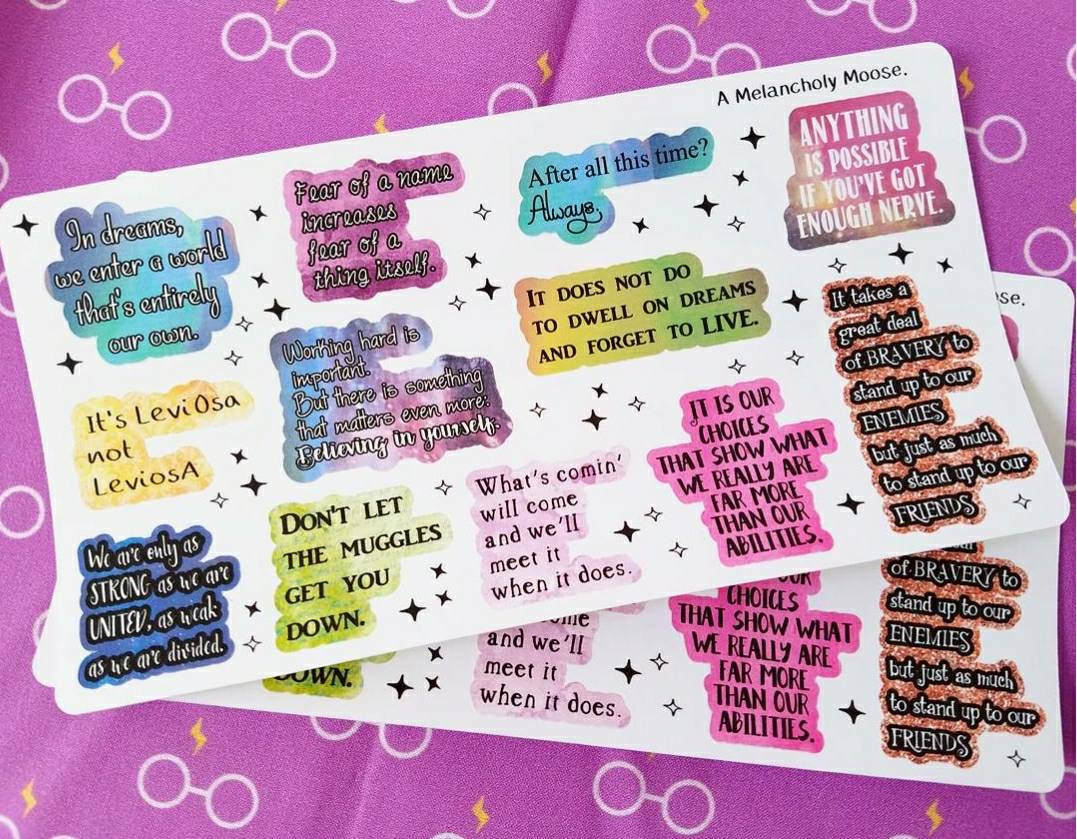 A Melancholy Moose.
In dreams,
we enter a world
that's entirely
our own.
Fear of a name
increases
fear of a
thing itself.
After all this time?
Always.
ANYTHING
IS POSSIBLE
IF YOU'VE GOT
ENOUGH NERVE.
It's LeviOsa
not
LeviosA
Working hard is
important.
But there is something
that matters even more:
Believing in yourself.
IT DOES NOT DO
TO DWELL ON DREAMS
AND FORGET TO LIVE.
It takes a
great deal
of BRAVERY to
stand up to our
ENEMIES
but just as much
to stand up to our
FRIENDS
We are only as
STRONG as we are
UNITED, as weak
as we are divided.
DON'T LET
THE MUGGLES
GET YOU
DOWN.
What's comin'
will come
and we'll
meet it
when it does.
IT IS OUR
CHOICES
THAT SHOW WHAT
WE REALLY ARE
FAR MORE
THAN OUR
ABILITIES.
se.
OWN.
and we'll
meet it
when it does.
OUR
CHOICES
THAT SHOW WHAT
WE REALLY ARE
FAR MORE
THAN OUR
ABILITIES.
of BRAVERY to
stand up to our
ENEMIES
but just as much
to stand up to our
FRIENDS